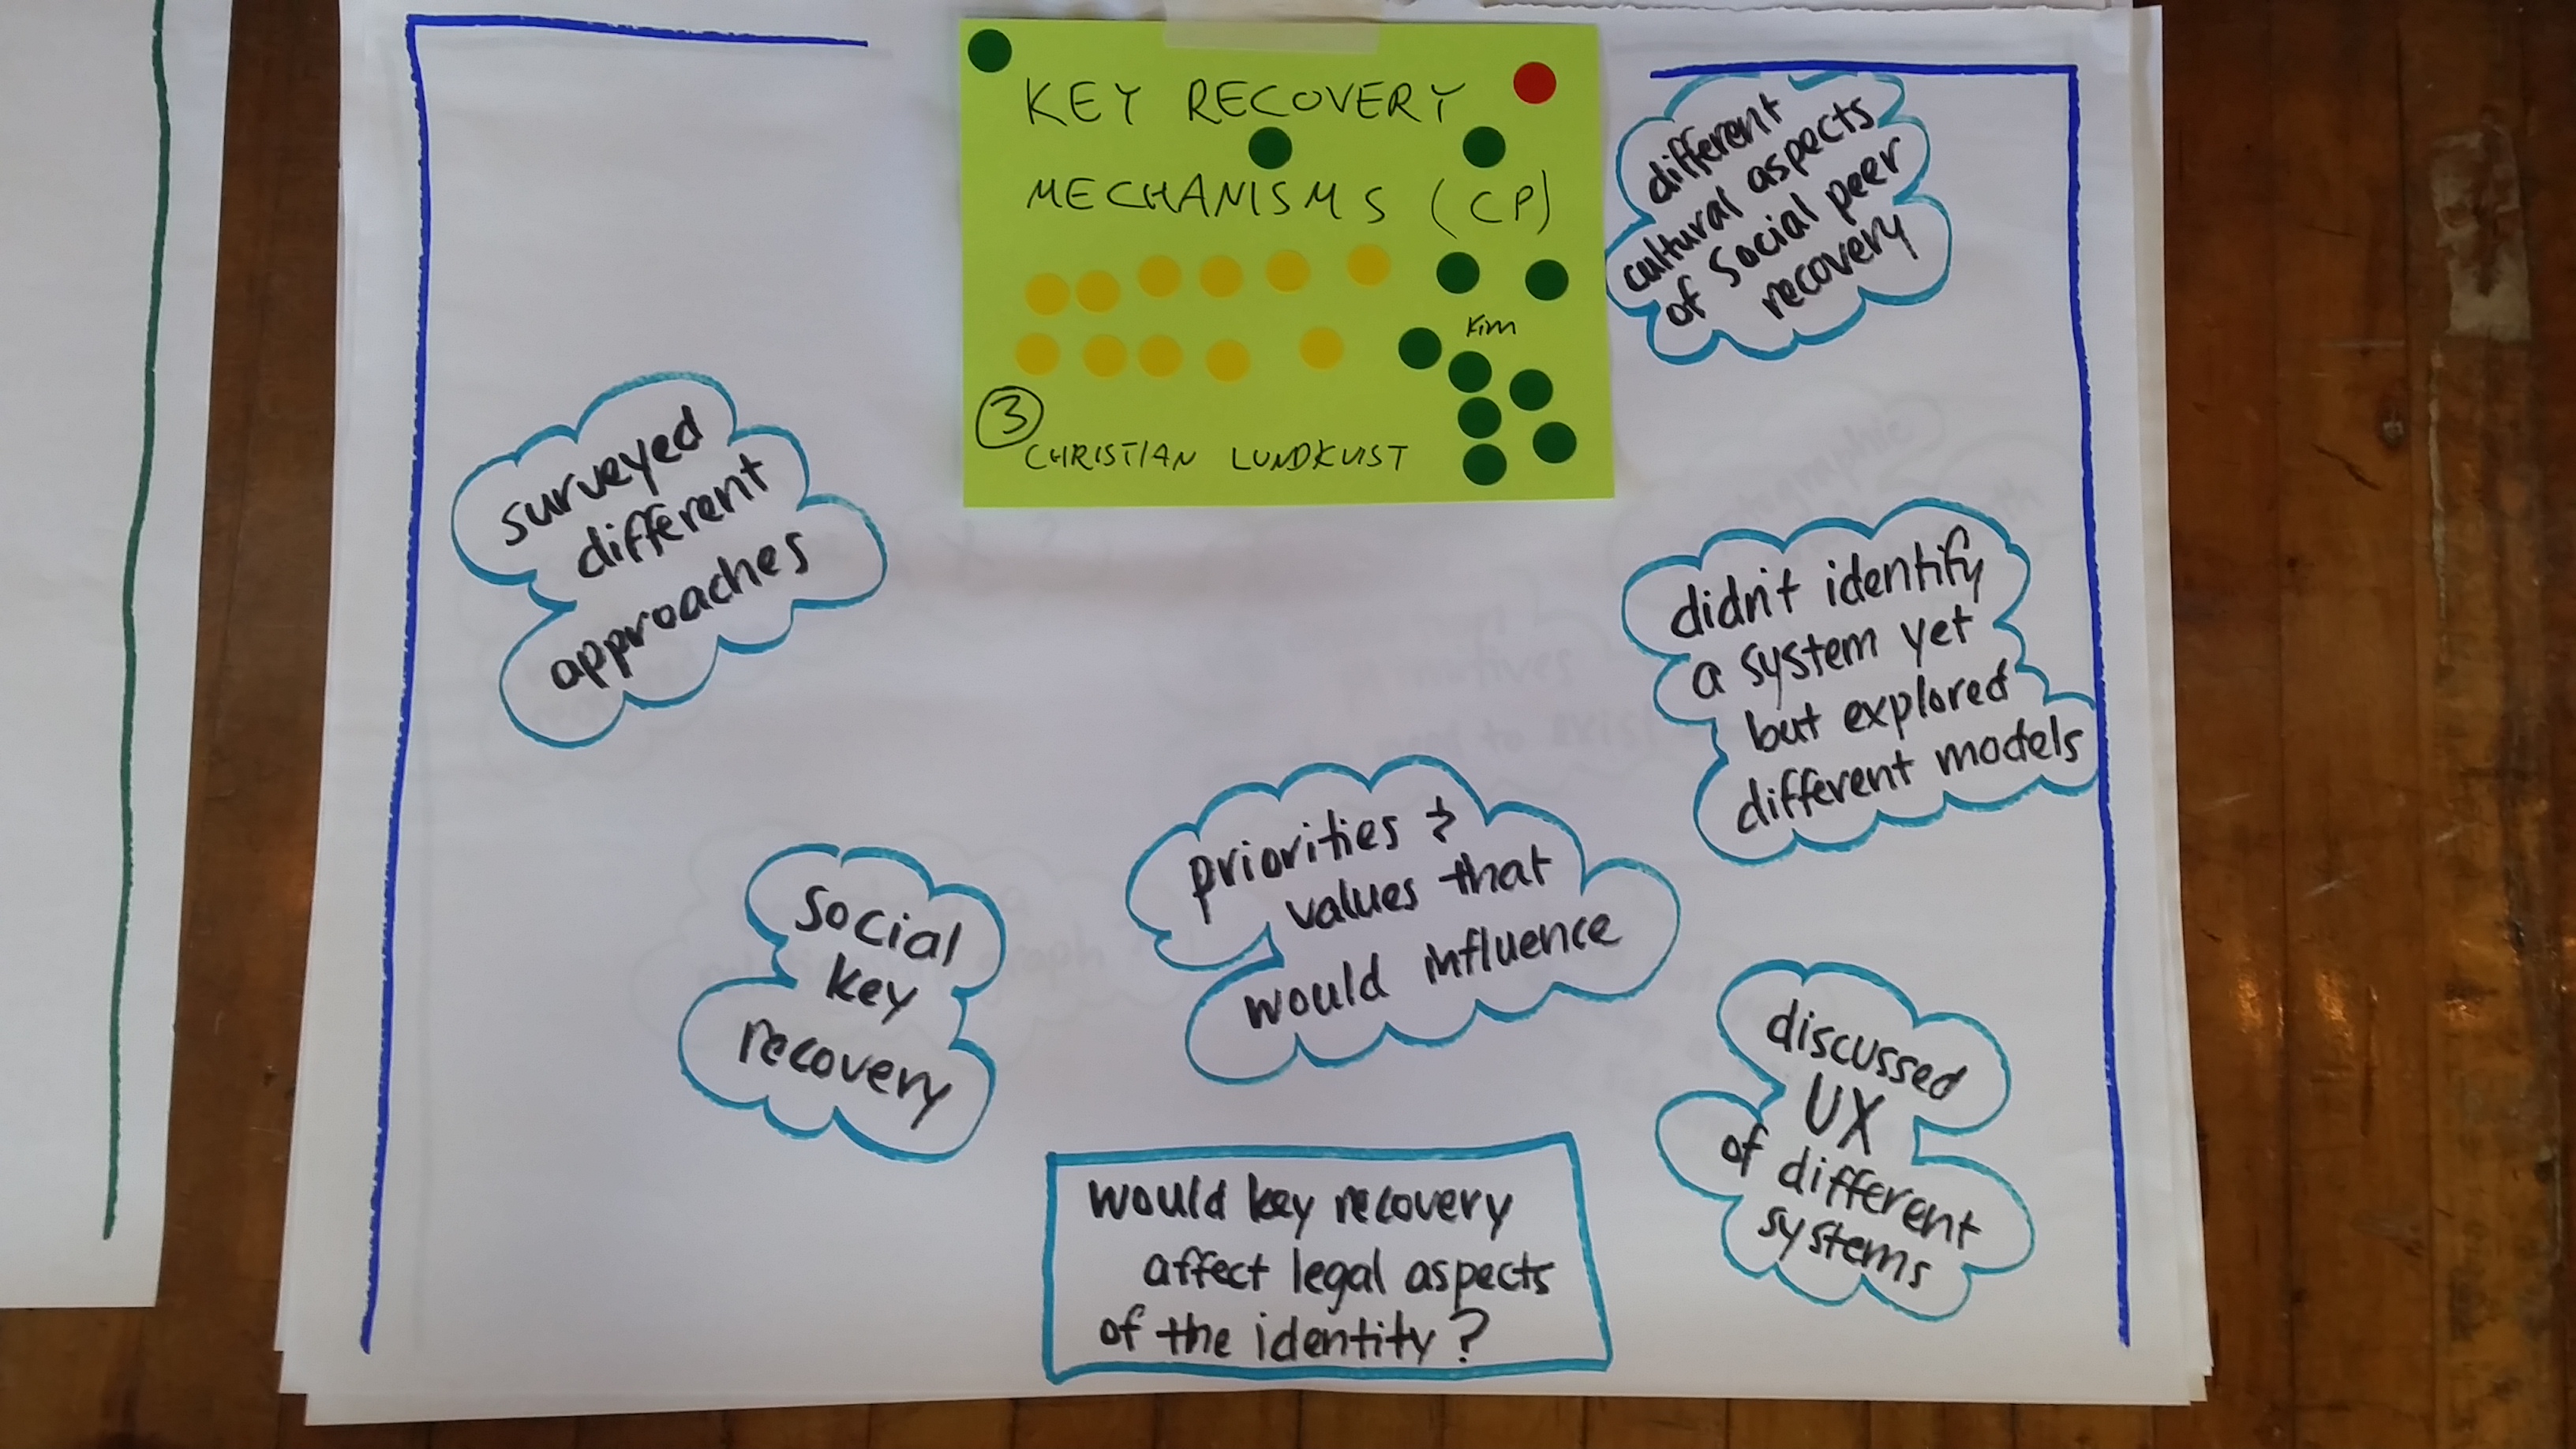 KEY RECOVERY
MECHANISMS (CP)
Kim
3
CHRISTIAN LUNDKVIST
different
cultural aspects
of social peer
recovery
surveyed
different
approaches
didn't identify
a system yet
but explored
different models
social
key
recovery
priorities &
values that
would influence
discussed
UX
of different
systems
would key recovery
affect legal aspects
of the identity?